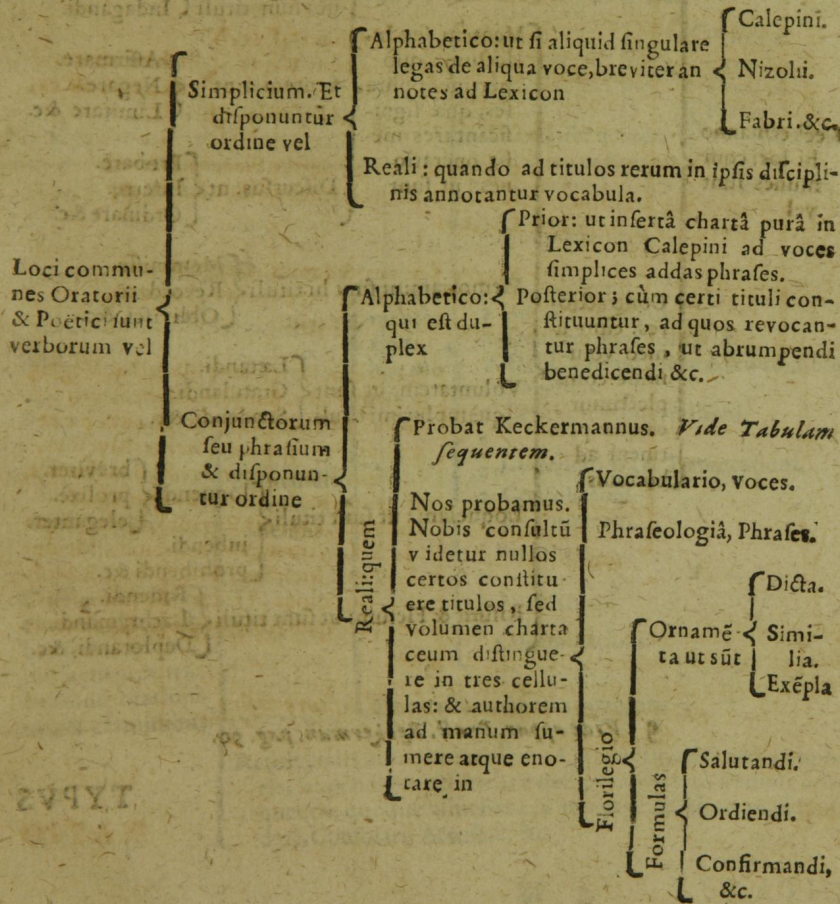 Loci commu-
nes Oratorii
& Poëtici sunt
verborum vel
Simplicium. Et
disponuntur
ordine vel
Alphabetico: ut si aliquid singulare
legas de aliqua voce, breviter an
notes ad Lexicon
Calepini.
Nizolii.
Fabri. &c.
Reali: quando ad titulos rerum in ipsis discipli-
nis annotantur vocabula.
Conjunctorum
seu phrasium
& disponun-
tur ordine
Alphabetico:
qui est du-
plex
Prior: ut insertâ chartâ purâ in
Lexicon Calepini ad voces
simplices addas phrases.
Posterior; cùm certi tituli con-
stituuntur, ad quos revocan-
tur phrases, ut abrumpendi
benedicendi &c.
Reali: quem
Probat Keckermannus. Vide Tabulam
sequentem.
Nos probamus.
Nobis consultū
videtur nullos
certos constitu
ere titulos, sed
volumen charta
ceum distingue-
re in tres cellu-
las: & authorem
ad manum su-
mere atque eno-
tare in
Vocabulario, Voces.
Phraseologiâ, Phrases.
Florilegio
Ornamē-
ta ut sūt
Dicta.
Simi-
lia.
Exēpla
Formulas
Salutandi.
Ordiendi.
Confirmandi,
&c.